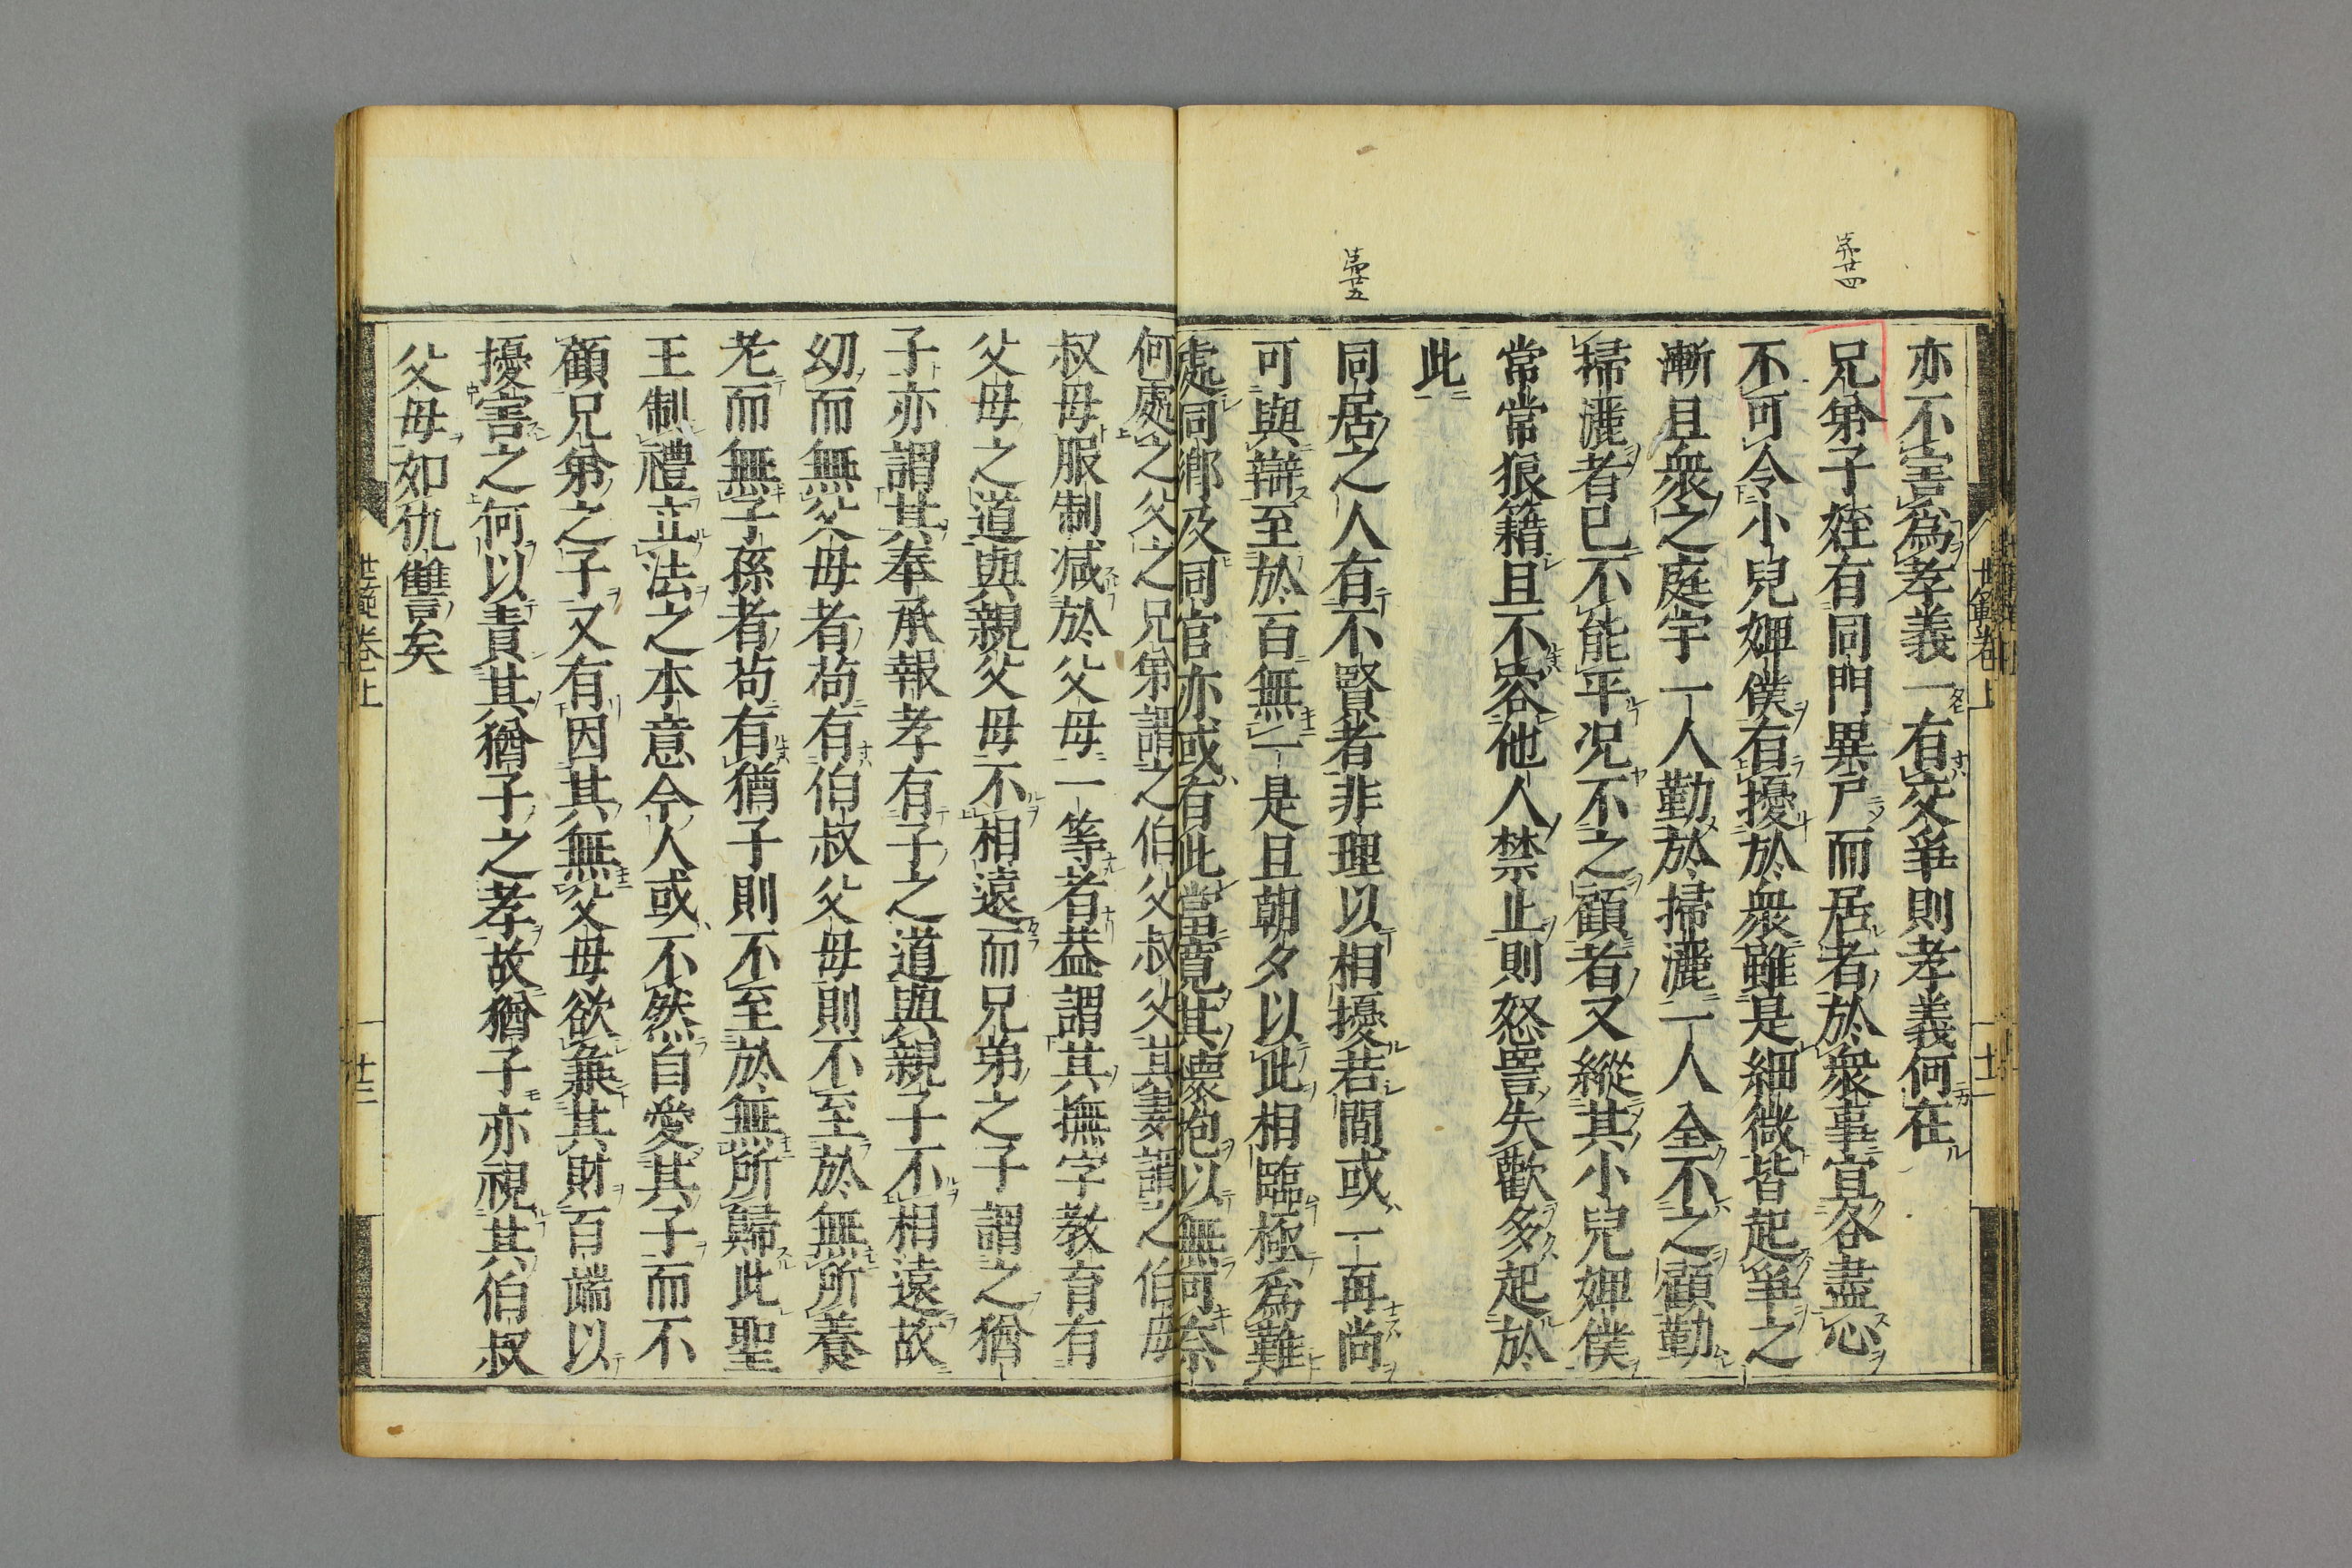 亦不害為孝義一有交爭則孝義何在
兄弟子姪有同門異戸而居者於衆事宜各盡心
不可令小兒婢僕有擾於衆雖是細微皆起爭之
漸且衆之庭宇一人勤於掃灑一人全不之顧勤
掃灑者已不能平况不之顧者又縱其小兒婢僕
常常狼籍且不容他人禁止則怒詈失歡多起於
此
同居之人有不賢者非理以相擾若間或一再尚
可與辯至於百無一是且朝夕以此相臨極為難
處同鄉及同官亦或有此當寛其懷抱以無可奈
何處之父之兄弟謂之伯父叔父其妻謂之伯母
叔母服制減於父母一等者葢謂其撫字教育有
父母之道與親父母不相遠而兄弟之子謂之猶
子亦謂其奉承報孝有子之道與親子不相遠故
幼而無父母者苟有伯叔父母則不至於無所養
老而無子孫者苟有猶子則不至於無所歸此聖
王制禮立法之本意今人或不然自愛其子而不
顧兄弟之子又有因其無父母欲兼其財百端以
擾害之何以責其猶子之孝故猶子亦視其伯叔
父母如仇讐矣
第廿四
第廿五
世範卷上
廿二
世範卷上
廿三